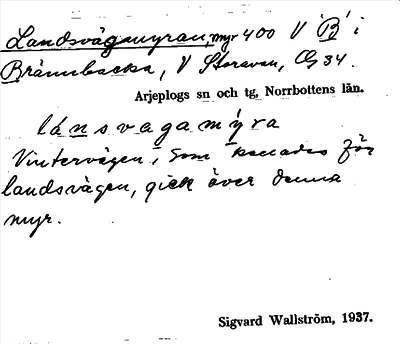 Landsvägsmyran, myr 400 V 'B' i
Brännbacka, V Storavan, Cg 34.
Arjeplogs sn och tg, Norrbottens län.
lánsvagamýra
Vintervägen, som kallades för
landsvägen, gick över denna
myr.
Sigvard Wallström, 1937.